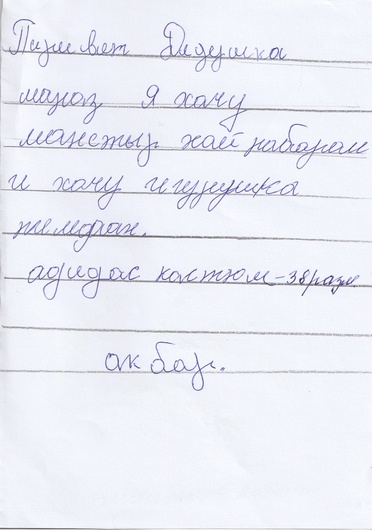 Привет Дедушка
мароз я хачу
манстыр хай набаран
и хачу игрушка
телефан.
адидас костюм - 38 разм
акбар.